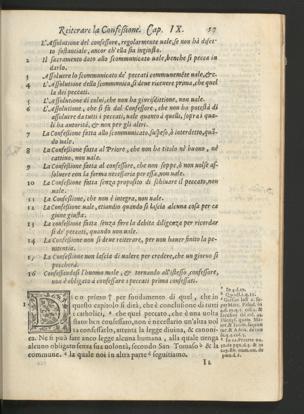 Reiterare la Confessione. Cap. IX. 57
L'Assolutione del confessore, regolarmente uale, se non hà difetto
sustantiale, ancor ch'ella sia ingiusta.
2 Il sacramento dato allo scommunicato uale, benche si pecca in
darlo.
3 Assoluere lo scommunicato de' peccati communemēte uale, &c.
4 L'Assolutione della scommunica, si deue riceuere prima, che quella
de i peccati.
5 L'Assolutione di colui, che non ha giurisditione, non uale.
6 L'Assolutione, che si fà dal Confessore, che non ha potestà di
assoluere da tutti i peccati, uale quanto à quelli, sopra i quali
ha autorità, & non per gli altri.
7 La Confessione fatta allo scommunicato, suspeso, ò interdetto, quādo
uale.
8 La confessione fatta al Priore, che non ha titolo nè buono, nè
cattiuo, non uale.
9 La Confessione fatta al confessore, che non seppe, ò non uolse assoluere
con la forma necessaria per essa, non uale.
10 La Confessione fatta senza proposito di schiuare il peccato, non
uale.
11 La Confessione, che non è integra, non uale.
12 La Confessione uale, etiandio quando si lascia alcuna cosa per cagione
giusta.
13 La confessione fatta senza fare la debita diligenza per ricordarsi
de' peccati, quando non uale.
14 La Confessione non si deue reiterare, per non hauer finito la penitentia.
15 La Confessione non lascia di ualere per credere, che un giorno si
peccherà.
16 Confessandosi l'huomo male, & tornando all'istesso confessore,
non è obligato à confessare i peccati prima confessati.
Dico primo per fondamento di quel, che in
questo capitolo si dirà, che è conclusione di tutti
i catholici, che quel peccato, che è una uolta
stato ben confessato, non è necessario un'altra uolta
confessarlo, attenta la legge diuina, & canonica.
Ne si può fare anco legge alcuna humana, alla quale uenga
alcuno obligato senza sua uolontà, secondo San Tomaso & la
commune. la quale noi in altra parte seguitiamo.